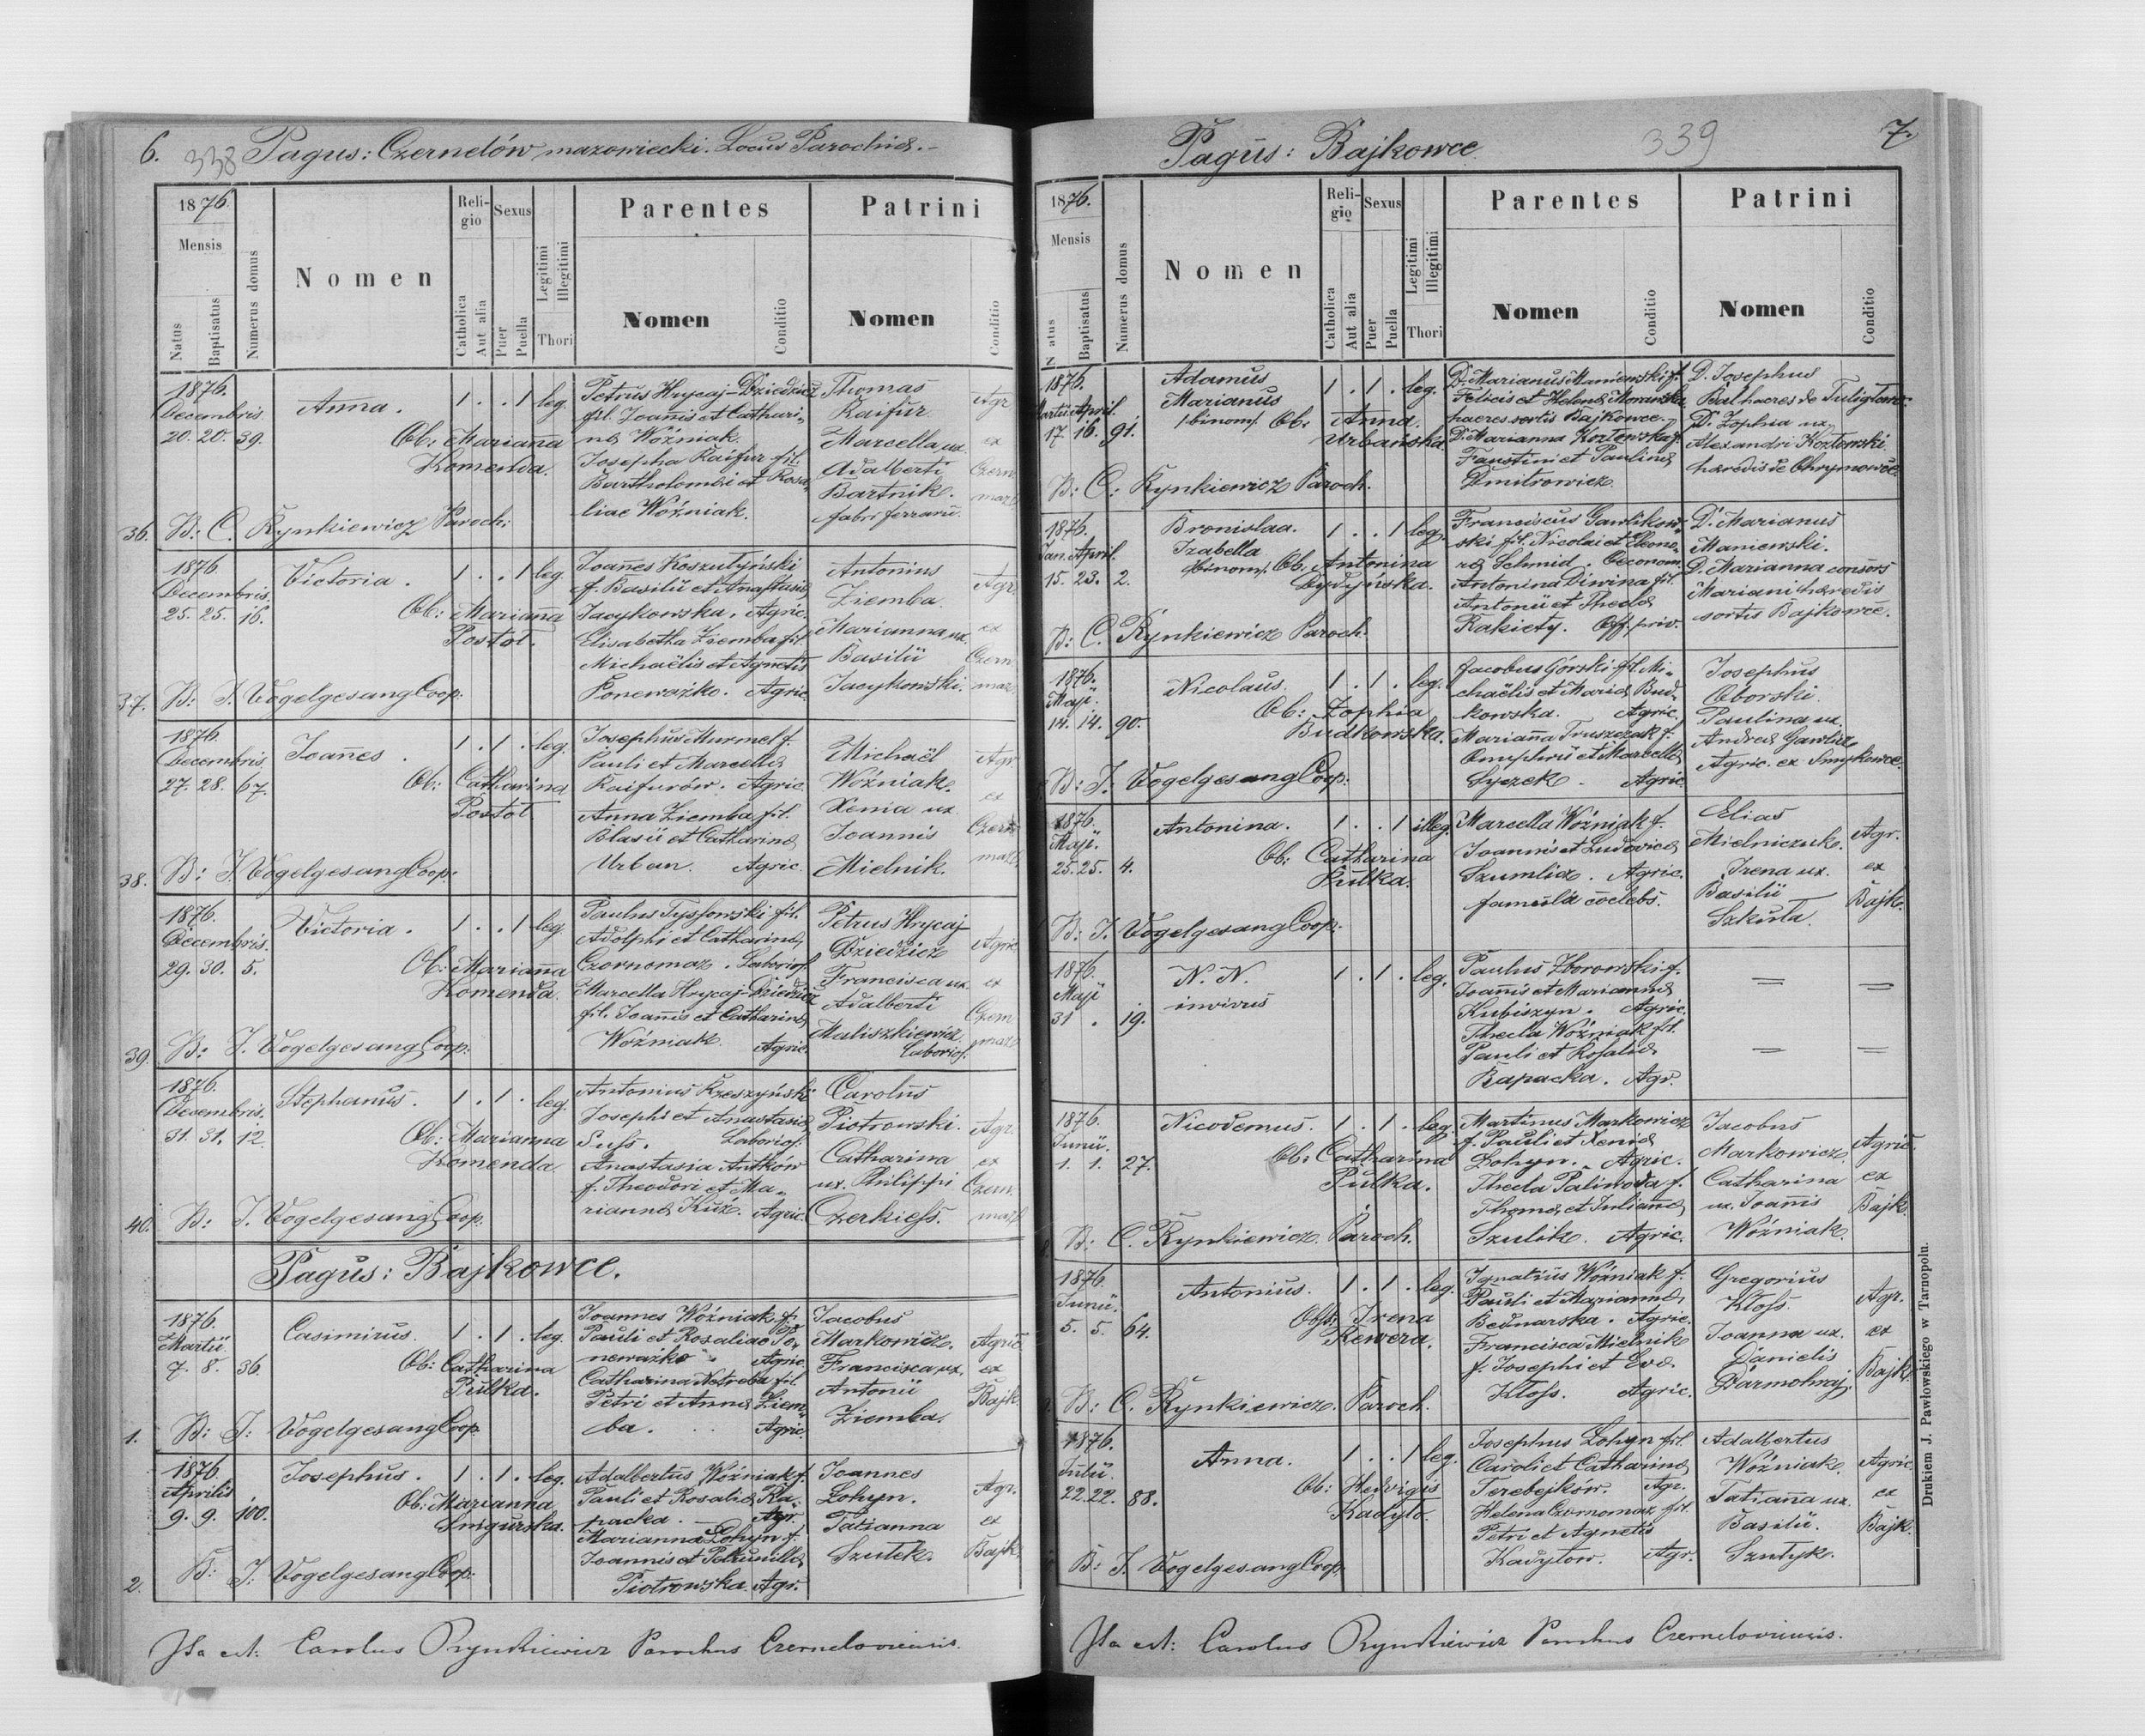 6. 338 Pagus: Czernelów mazowiecki. Locus Parochiæ.
1876.
Mensis
Natus
Baptisatus
Numerus domus
Nomen
Religio
Catholica
Aut alia
Sexus
Puer
Puella
Legitimi
Illegitimi
Thori
Parentes
Nomen
Conditio
Patrini
Nomen
Conditio
1876.
Decembris
20. 20. 39.
Anna.
1 . . 1 leg.
Ob: Marianna
Komenda.
Petrus Hrycaj-Dziedzic
fil. Joannis et Cathari-
næ Woźniak.
Josepha Kaifur fil.
Bartholomæi et Rosa-
liae Woźniak.
Thomas
Kaifur.
Marcella ux.
Adalberti
Bartnik.
fabri ferrarii.
Agr.
ex
Czern.
maz.
36. B: C. Rynkiewicz Paroch:
1876.
Decembris.
25. 25. 16.
Victoria.
1 . . 1 leg.
Ob: Marianna
Postół.
Joannes Koszutyński
f. Basilii et Anastasiæ
Jacykowska. Agric.
Elisabetha Ziemba fil.
Michaëlis et Agnetis
Poneważko. Agric.
Antonius
Ziemba.
Marianna ux.
Basilii
Jacykowski.
Agr.
ex
Czern.
maz.
37. B: J. Vogelgesang Coop:
1876.
Decembris.
27. 28. 67.
Joannes.
1 . 1 . leg.
Ob: Catharina
Postół.
Josephus Murmel f.
Pauli et Marcellæ
Kaifurów. Agric.
Anna Ziemba fil.
Blasii et Catharinæ
Urban. Agric.
Michaël
Woźniak.
Xenia ux.
Joannis
Mielnik.
Agr.
ex
Czern.
maz.
38. B: J. Vogelgesang Coop:
1876.
Decembris.
29. 30. 5.
Victoria.
1 . . 1 leg.
Ob: Marianna
Komenda.
Paulus Tyssowski fil.
Adolphi et Catharinæ
Czornomaz. Laborios.
Marcella Hrycaj-Dziedzic
fil. Joannis et Catharinæ
Woźniak. Agric.
Petrus Hrycaj-
Dziedzic
Francisca ux.
Adalberti
Maliszkiewicz.
Laborios.
Agric.
ex
Czern.
maz.
39. B: J. Vogelgesang Coop:
1876.
Decembris.
31. 31. 12.
Stephanus.
1 . 1 . leg.
Ob: Marianna
Komenda
Antonius Kreszyński
Josephi et Anastasiæ
Suss. Laborios.
Anastasia Antków
f. Theodori et Ma-
riannæ Kuź. Agric.
Carolus
Piotrowski.
Catharina
ux. Philippi
Czerkiess.
Agr.
ex
Czern.
maz.
40. B: J. Vogelgesang Coop.
Pagus: Bajkowce.
1876.
Martii.
7. 8. 36.
Casimirus.
1 . 1 . leg.
Ob: Catharina
Pulka.
Joannes Woźniak f.
Pauli et Rosaliae Po-
neważko. Agric.
Catharina Netreba fil.
Petri et Annæ Ziem-
ba. Agric.
Jacobus
Markowicz.
Francisca ux.
Antonii
Ziemba.
Agric.
ex
Bajk.
1. B: J: Vogelgesang Coop.
1876.
Aprilis
9. 9. 100.
Josephus.
1 . 1 . leg.
Ob: Marianna
Smigurska.
Adalbertus Woźniak f.
Pauli et Rosaliæ Ra-
packa. Agr.
Marianna Łohyn f.
Joannis et Petrunillæ
Piotrowska. Agr.
Joannes
Łohyn.
Tatianna
Szutek.
Agr.
ex
Bajk.
2. B: J: Vogelgesang Coop:
Ita est: Carolus Rynkiewicz Parochus Czerneloviensis.
Pagus: Bajkowce 339 7.
1876.
Mensis
Natus
Baptisatus
Numerus domus
Nomen
Religio
Catholica
Aut alia
Sexus
Puer
Puella
Legitimi
Illegitimi
Thori
Parentes
Nomen
Conditio
Patrini
Nomen
Conditio
1876.
Martii. April.
17. 16. 91.
Adamus
Marianus
/binom/. Ob: Anna
Urbańska.
1 . 1 . leg.
D. Marianus Maniewski f.
Felicis et Helenæ Morawska,
haeres sortis Bajkowce.
D. Marianna Kozłowska f.
Faustini et Paulinæ
Dmitrowicz.
D. Josephus
Bal haeres de Tuligłowy.
D. Zophia ux.
Alexandri Kozłowski
hæredis de Chrynowce.
B: C: Rynkiewicz Paroch.
1876.
Jan. April.
15. 23. 2.
Bronislaa.
Izabella
/binom/. Ob: Antonina
Dydyńska.
1 . . 1 leg.
Franciscus Gawlikow-
ski fil. Nicolai et Eleono-
ræ Schmid. Œconom.
Antonina Diwina fil.
Antonii et Theclæ
Rakiety. Off. priv.
D. Marianus
Maniewski.
D. Marianna consors
Mariani hæredis
sortis Bajkowce.
B: C. Rynkiewicz Paroch.
1876.
Maji.
14. 14. 90.
Nicolaus.
1 . 1 . leg.
Ob: Zophia
Budkowska.
Jacobus Górski fil. Mi-
chaëlis et Mariæ Bud-
kowska. Agric.
Marianna Truszczak f.
Onuphrii et Marcellæ
Syszek. Agric.
Josephus
Oborski.
Paulina ux.
Andreæ Gawlicz
Agric. ex Smykowce.
B: J. Vogelgesang Coop:
1876.
Maji.
25. 25. 4.
Antonina.
1 . . 1 illeg.
Ob: Catharina
Pulka.
Marcella Woźniak f.
Joannis et Ludovicæ
Szumlicz. Agric.
famula coelebs.
Elias
Mielniczuk.
Irena ux.
Basilii
Szkuta.
Agr.
ex
Bajk.
B: J. Vogelgesang Coop:
1876.
Maji
31 . 19.
N. N.
invivus
1 . 1 . leg.
Paulus Zborowski f.
Joannis et Mariannæ
Kubiszyn. Agric.
Thecla Woźniak fil.
Pauli et Rosaliæ
Rapacka. Agr.
1876.
Junii.
1. 1. 27.
Nicodemus.
1 . 1 . leg.
Ob: Catharina
Pulka.
Martinus Markowicz
f. Pauli et Xeniæ
Łohyn. Agric.
Thecla Palinoda f.
Thomæ et Julianæ
Szulik. Agric.
Jacobus
Markowicz.
Catharina
ux. Joannis
Woźniak.
Agric.
ex
Bajk.
B: C. Rynkiewicz. Paroch.
1876.
Junii.
5. 5. 64.
Antonius.
1 . 1 . leg.
Obst: Irena
Rewera.
Ignatius Woźniak f.
Pauli et Mariannæ
Bednarska. Agric.
Francisca Mielnik
f. Josephi et Evæ
Kloss. Agric.
Gregorius
Kloss.
Joanna ux.
Danielis
Darmohraj.
Agr.
ex
Bajk.
B: C. Rynkiewicz. Paroch.
1876.
Julii.
22. 22. 88.
Anna.
1 . . 1 leg.
Ob: Hedvigis
Kadyło.
Josephus Łohyn fil.
Caroli et Catharinæ
Terebejkow. Agr.
Helena Czornomaz fil.
Petri et Agnetis
Kadyłow. Agr.
Adalbertus
Woźniak.
Tatianna ux.
Basilii.
Szutyk.
Agric.
ex
Bajk.
B: J. Vogelgesang Coop.
Ita est: Carolus Rynkiewicz Parochus Czerneloviensis.
Drukiem J. Pawłowskiego w Tarnopolu.